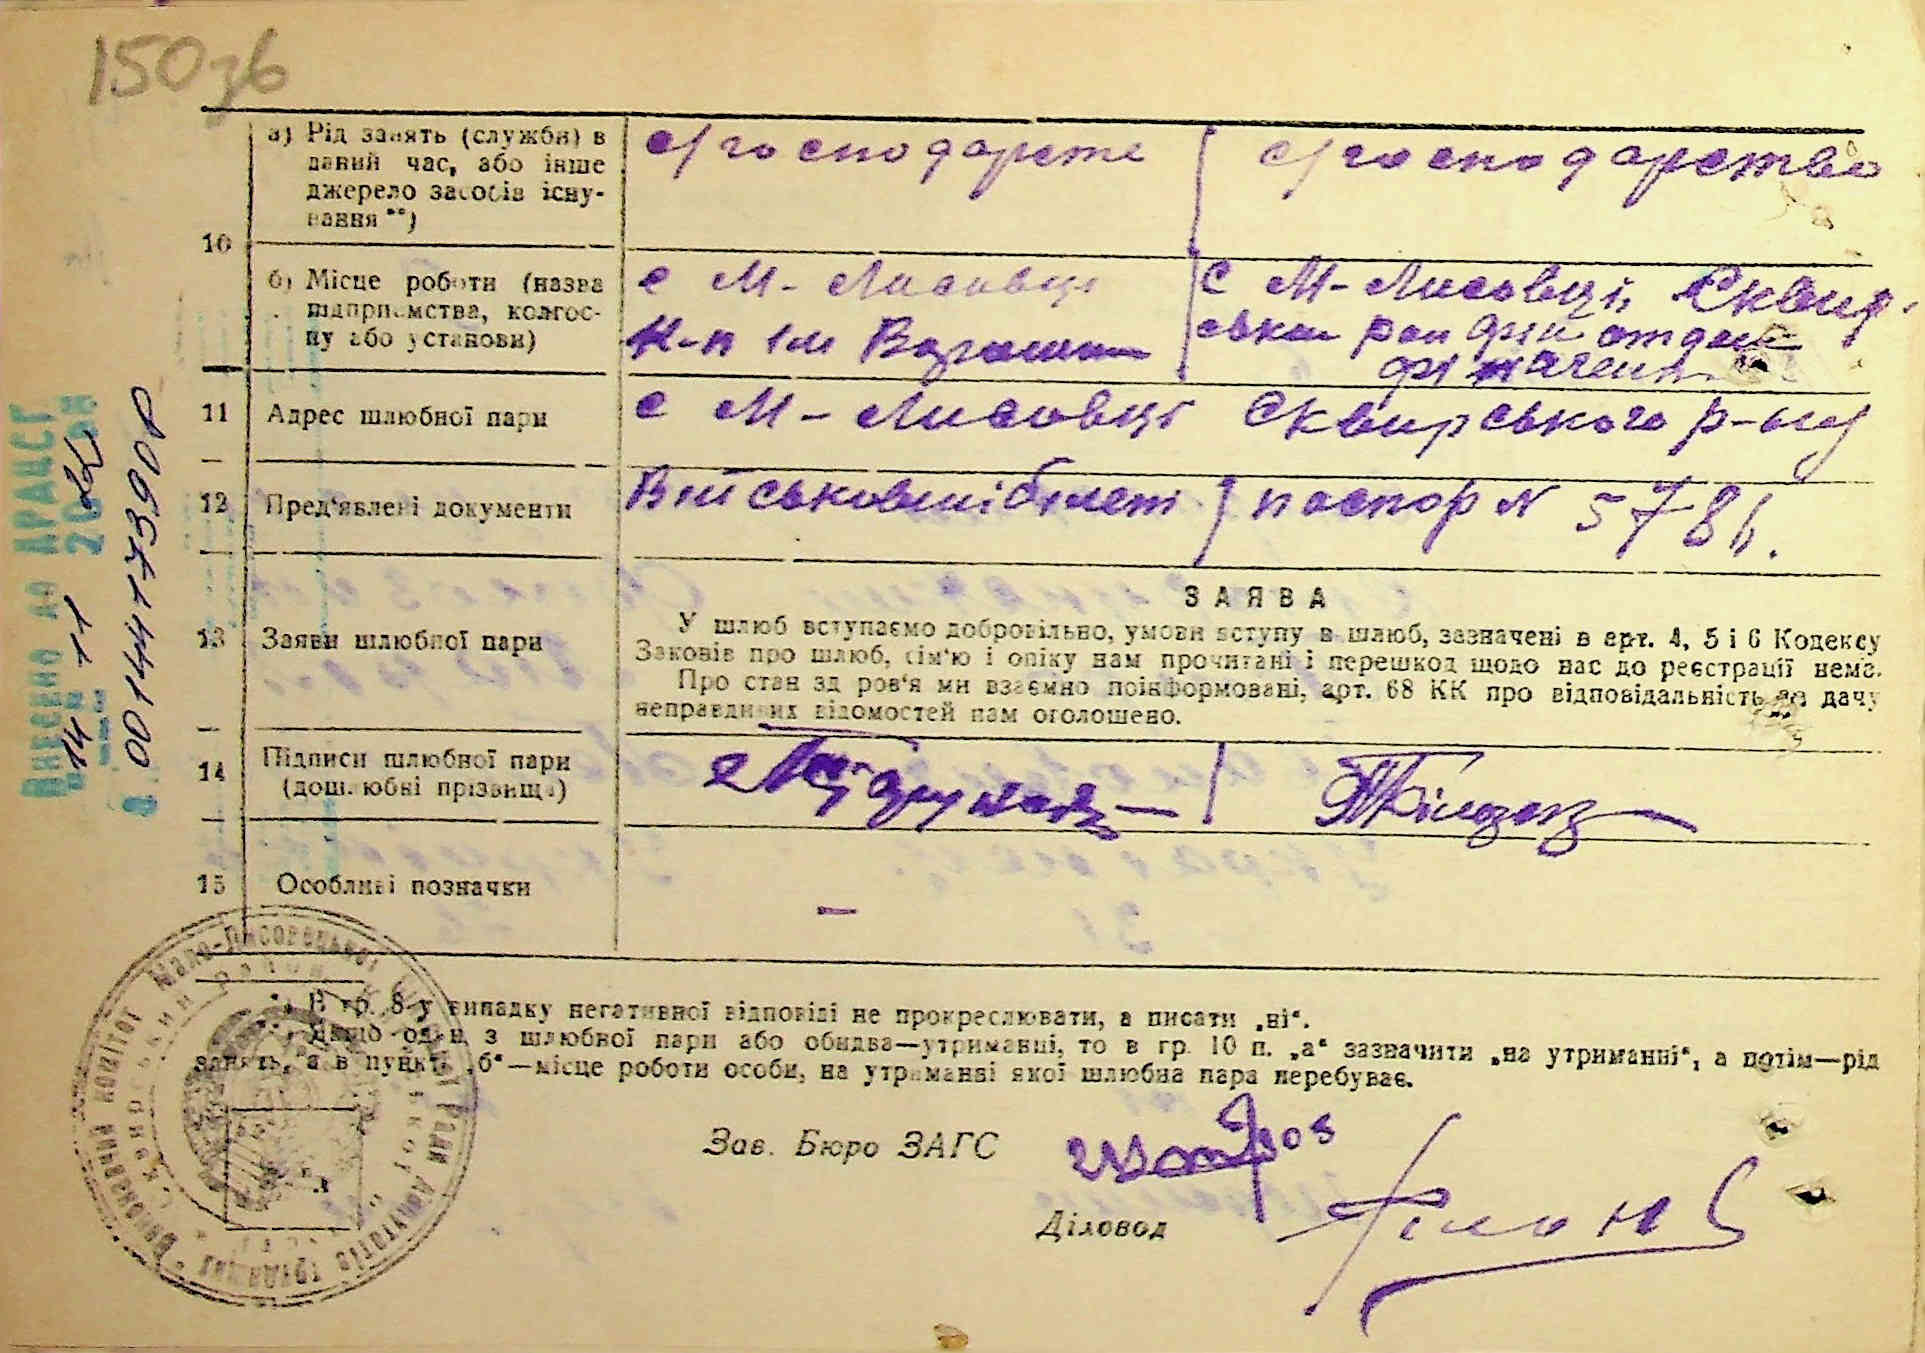 150зв
а) Рід занять (служби) в
даний час, або інше
джерело засобів існу-
вання **)
с/господарств
с/господарство
10
б) Місце роботи (назва
підприємства, колгос-
пу або установи)
с М-Лисовці
к-п ім
с М-Лисовці, Сквир
11
Адрес шлюбної пари
с М-Лисовці Сквирського р-ну
12
Пред'явлені документи
Військовий білет
паспор N 5786.
13
Заяви шлюбної пари
ЗАЯВА
У шлюб вступаємо добровільно, умови вступу в шлюб, зазначені в арт. 4, 5 і 6 Кодексу
Законів про шлюб, сім'ю і опіку нам прочитані і перешкод щодо нас до реєстрації нема.
Про стан здоров'я ми взаємно поінформовані, арт. 68 КК про відповідальність за дачу
неправдивих відомостей нам оголошено.
14
Підписи шлюбної пари
(дошлюбні прізвища)
15
Особливі позначки
—
*) В гр. 8 у випадку негативної відповіді не прокреслювати, а писати „ні“.
**) Якщо один з шлюбної пари або обидва—утриманці, то в гр. 10 п. „а“ зазначити „на утриманні“, а потім—рід
занять, а в пункті „б“—місце роботи особи, на утриманні якої шлюбна пара перебуває.
Зав. Бюро ЗАГС
Діловод
Внесено до ДРАЦСГ
14 11 20
00144173908